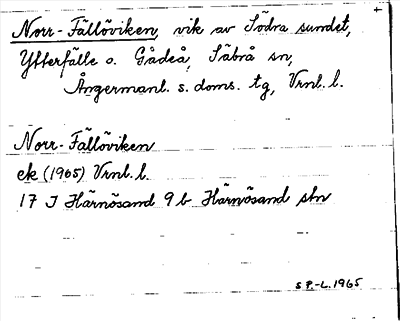 Norr-Fällöviken, vik av Södra sundet,
Ytterfälle o. Gådeå, Säbrå sn,
Ångermanl. s. doms. tg, Vrnl. l.
Norr-Fällöviken
ek (1965) Vrnl. l.
17 J Härnösand 9 b Härnösand stn
S P.-L. 1965